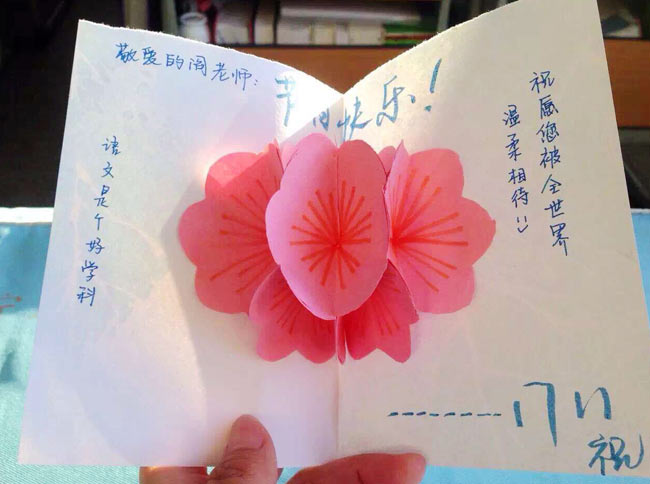 敬爱的阎老师:
节日快乐!
语文是个好学科
祝愿您被全世界
温柔相待:)
祝